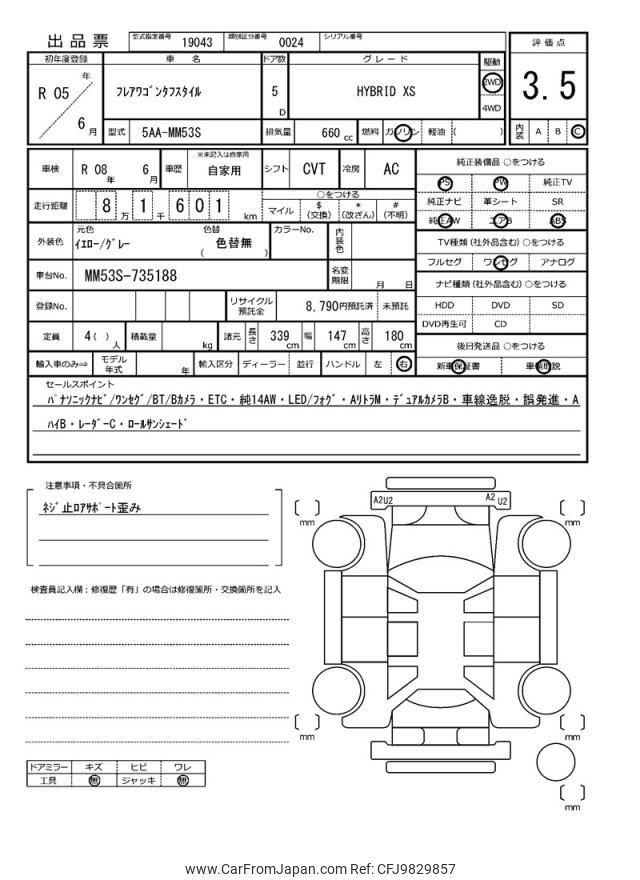 出品票 型式指定番号 19043 類別区分番号 0024 シリアル番号
評価点
3.5
内装 A B C
初年度登録 車名 ドア数 グレード 駆動
R 05 年 6 月
フレアワゴンタフスタイル 5 D HYBRID XS 2WD 4WD
型式 5AA-MM53S 排気量 660 cc 燃料 ガソリン 軽油 ( )
車検 R 08 年 6 月 車歴 ※未記入は自家用 自家用 シフト CVT 冷房 AC
走行距離 8 万 1 千 6 0 1 km
○をつける
マイル $ (交換) * (改ざん) # (不明)
外装色 元色 イエロー/グレー 色替 ( 色替無 ) カラーNo. 内装色
車台No. MM53S-735188 名変期限 月 日
登録No. リサイクル預託金 8,790円預託済 未預託
定員 4( ) 人 積載量 kg 諸元 長さ 339 cm 幅 147 cm 高さ 180 cm
輸入車のみ⇒ モデル年式 年 輸入区分 ディーラー 並行 ハンドル 左 右
純正装備品 ○をつける
PS PW 純正TV
純正ナビ 革シート SR
純正AW エアB ABS
TV種類(社外品含む)○をつける
フルセグ ワンセグ アナログ
ナビ種類(社外品含む)○をつける
HDD DVD SD
DVD再生可 CD
後日発送品 ○をつける
新車保証書 車輌取説
セールスポイント
パナソニックナビ/ワンセグ/BT/Bカメラ・ETC・純14AW・LED/フォグ・AリトラM・デュアルカメラB・車線逸脱・誤発進・A
ハイB・レーダーC・ロールサンシェード
注意事項・不具合箇所
ネジ止ロアサポート歪み
検査員記入欄:修復歴「有」の場合は修復箇所・交換箇所を記入
A2 U2 A2 U2
mm mm
mm mm
mm
ドアミラー キズ ヒビ ワレ
工具 無 ジャッキ 無
www.CarFromJapan.com Ref: CFJ9829857